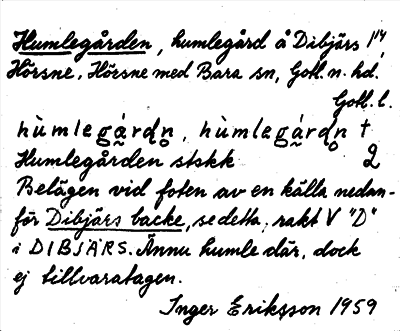 Humlegården, humlegård å Dibjärs 1¹⁴,
Hörsne, Hörsne med Bara sn, Gotl. n. hd.
Gotl. l.
hùmlegá̰rdn̥, hùmlegá̰rdn̥ †
Humlegården stskk 2
Belägen vid foten av en källa nedan-
för Dibjärs backe, se detta, rakt V "D"
i DIBJÄRS. Ännu humle där, dock
ej tillvaratagen.
Inger Eriksson 1959